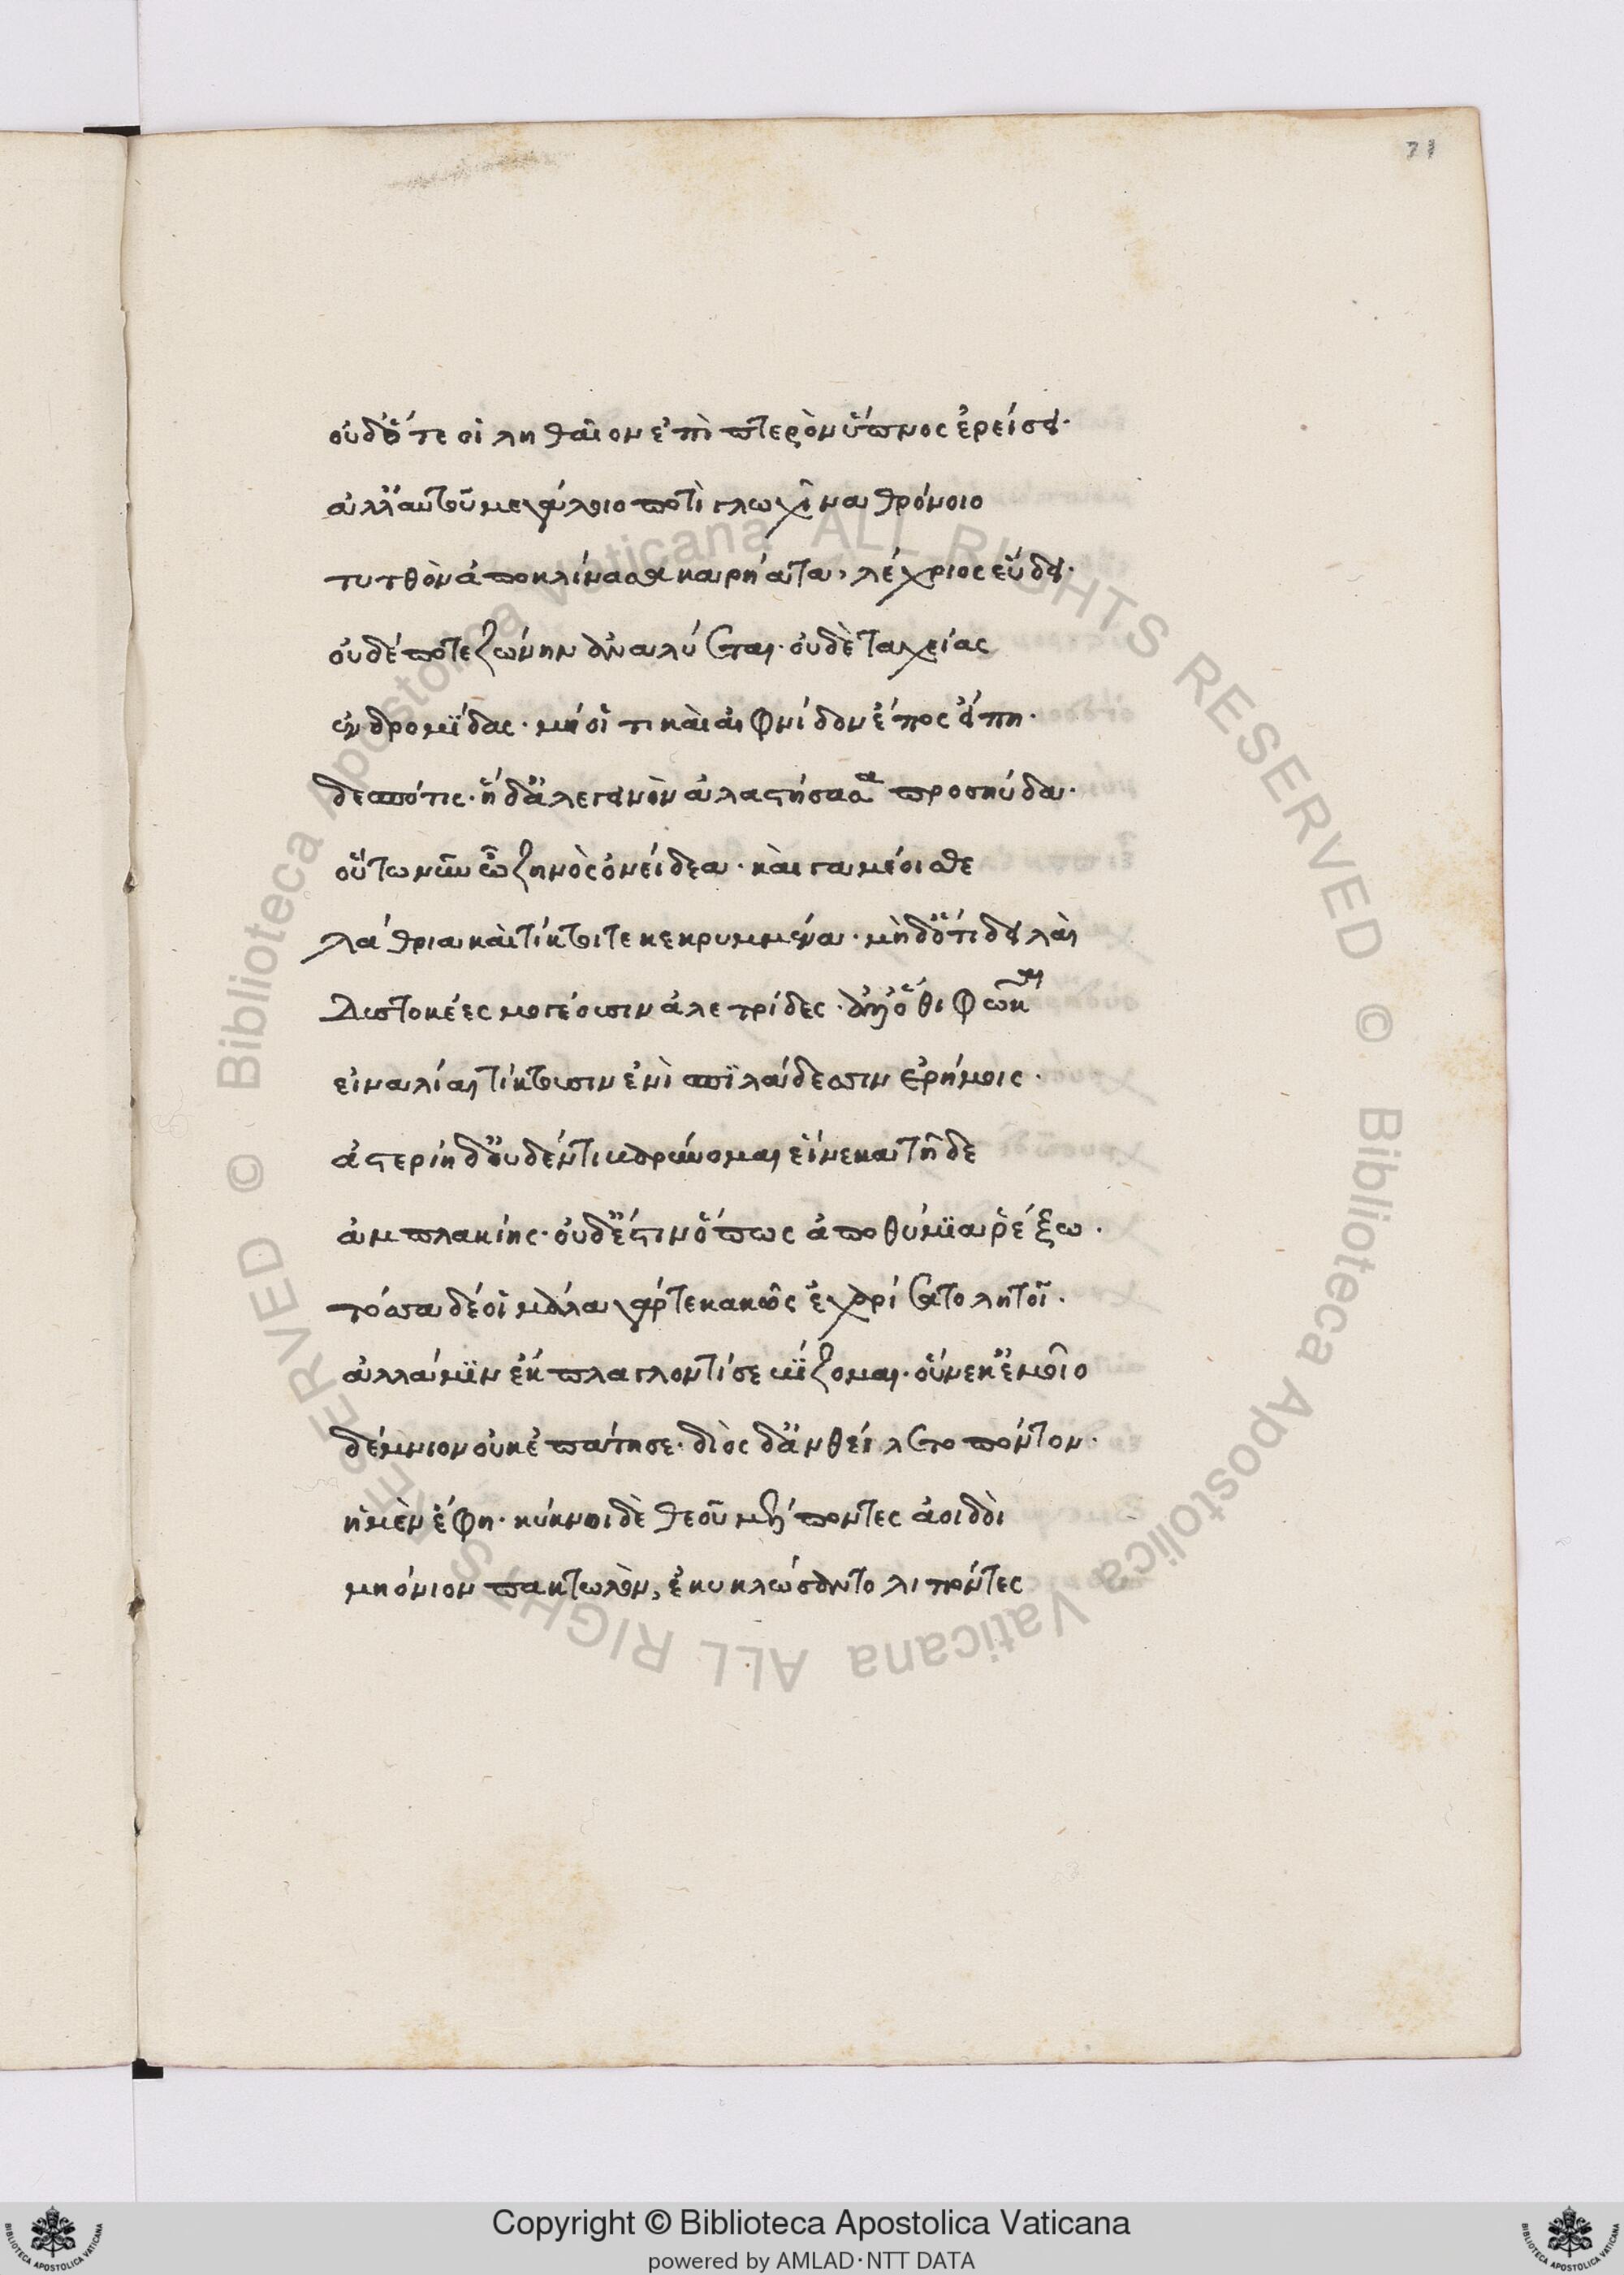 71
οὐδ' ὅτε οἱ ληθαῖον ἐπὶ πτερὸν ὕπνος ἐρείσει·
ἀλλ' αὐτοῦ μεγάλοιο ποτὶ γλωχῖνα θρόνοιο
τυτθὸν ἀποκλίνασα καρήατα, λέχριος εὕδει·
οὐδέ ποτε ζώνην ἀναλύεται· οὐδὲ ταχείας
ἐνδρομίδας· μή οἵ τι καὶ αἰφνίδον ἔπος εἴπη·
δεσπότις· ἡ δ' ἀλεγεινὸν ἀλαστήσασα προσηύδα·
οὕτω νῦν ὦ ζηνὸς ὀνείδεα· καὶ γαμέοισθε
λάθρια καὶ τίκτοιτε κεκρυμμένα· μὴ δ' ὅτι δειλαὶ
δυστοκέες μογέουσιν ἀλετρίδες· ἀλλ' ὅθι φῶκαι
εἰναλίαι τίκτουσιν ἐνὶ σπϊλάδεσσιν ἐρήμοις·
ἀστερίη δ' οὐδέν τι βαρύνομαι εἵνεκα τῆδε
ἀμπλακίης· οὐδ' ἔστιν ὅπως ἀποθύμϊα ῥέξω·
τόσσα δέ οἱ μάλα γάρ τε κακῶς ἐχαρίσατο λητοῖ·
ἀλλά μϊν ἔκπλαγλόν τι σεβίζομαι· οὕνεκ' ἐμοῖο
δέμνιον οὐκ ἐπάτησε· διὸς δ' ἀνθείλετο πόντον·
ἡ μὲν ἔφη· κύκνοι δὲ θεοῦ μέλποντες ἀοιδοὶ
μηόνιον πακτωλὸν, ἐκυκλώσαντο λιπόντες
Copyright © Biblioteca Apostolica Vaticana
powered by AMLAD·NTT DATA